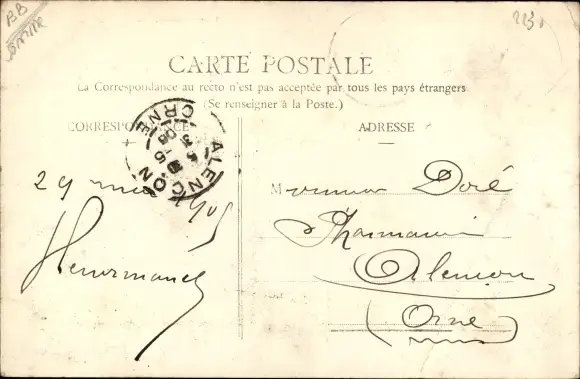 BB
223
CARTE POSTALE
La Correspondance au recto n'est pas acceptée par tous les pays étrangers
(Se renseigner à la Poste.)
CORRESPONDANCE
ADRESSE
ALENÇON
ORNE
29 mai 1905
Monsieur Doré
Pharmacien
Alençon
(Orne)